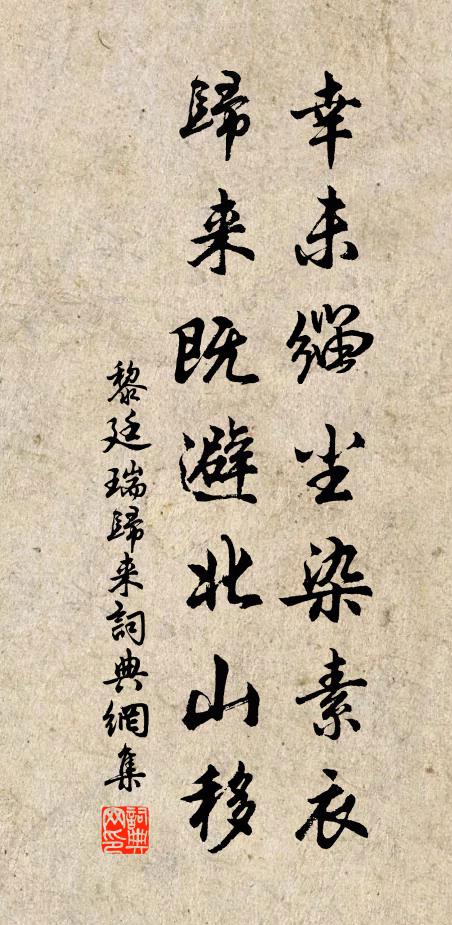 幸未緇尘染素衣
歸来既避北山移
黎廷瑞歸来詞典網集
詞典網印